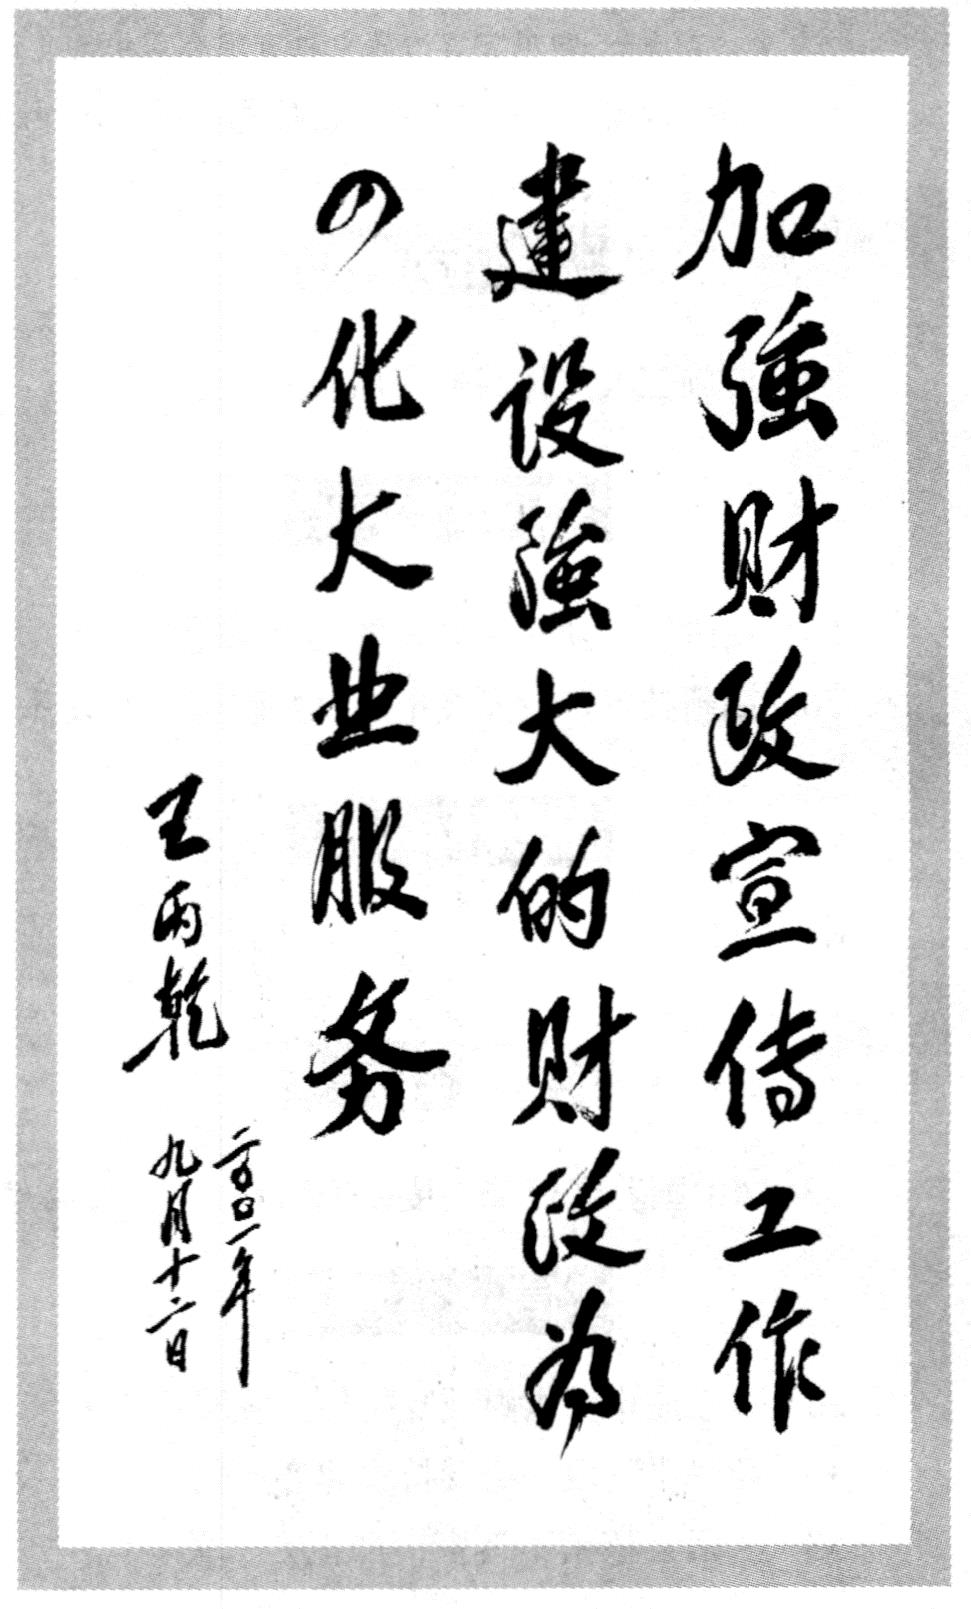 加強财政宣传工作
建设強大的财政为
四化大业服务
王丙乾
二〇〇一年
九月十二日